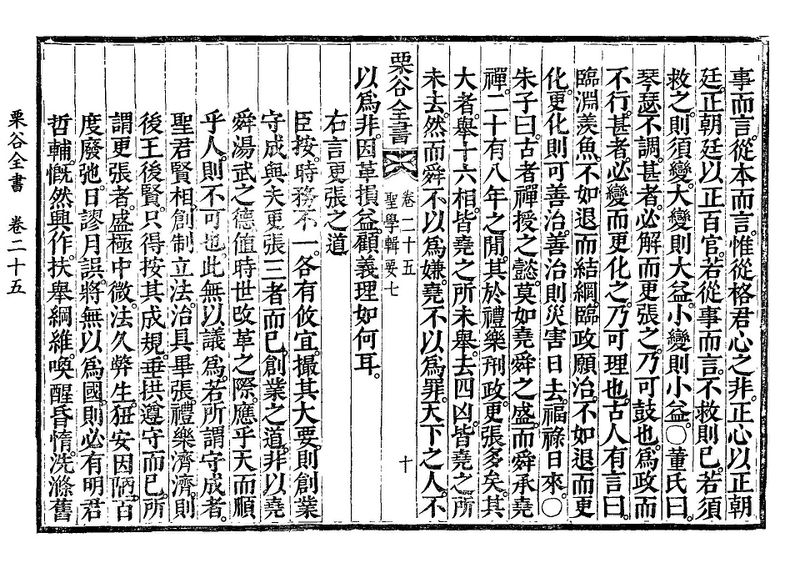 事而言。從本而言。惟從格君心之非。正心以正朝
廷。正朝廷以正百官。若從事而言。不救則已。若須
救之。則須變。大變則大益。小變則小益。〇董氏曰。
琴瑟不調。甚者。必解而更張之。乃可鼓也。爲政而
不行。甚者。必變而更化之。乃可理也。古人有言曰。
臨淵羨魚。不如退而結網。臨政願治。不如退而更
化。更化則可善治。善治則災害日去。福祿日來。〇
朱子曰。古者禪授之懿。莫如堯舜之盛。而舜承堯
禪。二十有八年之間。其於禮樂刑政。更張多矣。其
大者。擧十六相。皆堯之所未擧。去四凶。皆堯之所
未去。然而舜不以爲嫌。堯不以爲罪。天下之人。不
栗谷全書 卷二十五 聖學輯要七 十
以爲非。因革損益。顧義理如何耳。
右言更張之道
臣按。時務不一。各有攸宜。撮其大要。則創業
守成與夫更張三者而已。創業之道。非以堯
舜湯武之德。値時世改革之際。應乎天而順
乎人。則不可也。此無以議爲。若所謂守成者。
聖君賢相。創制立法。治具畢張。禮樂濟濟。則
後王後賢。只得按其成規。垂拱遵守而已。所
謂更張者。盛極中微。法久弊生。狃安因陋。百
度廢弛。日謬月誤。將無以爲國。則必有明君
哲輔。慨然興作。扶擧綱維。喚醒昏惰。洗滌舊
栗谷全書 卷二十五